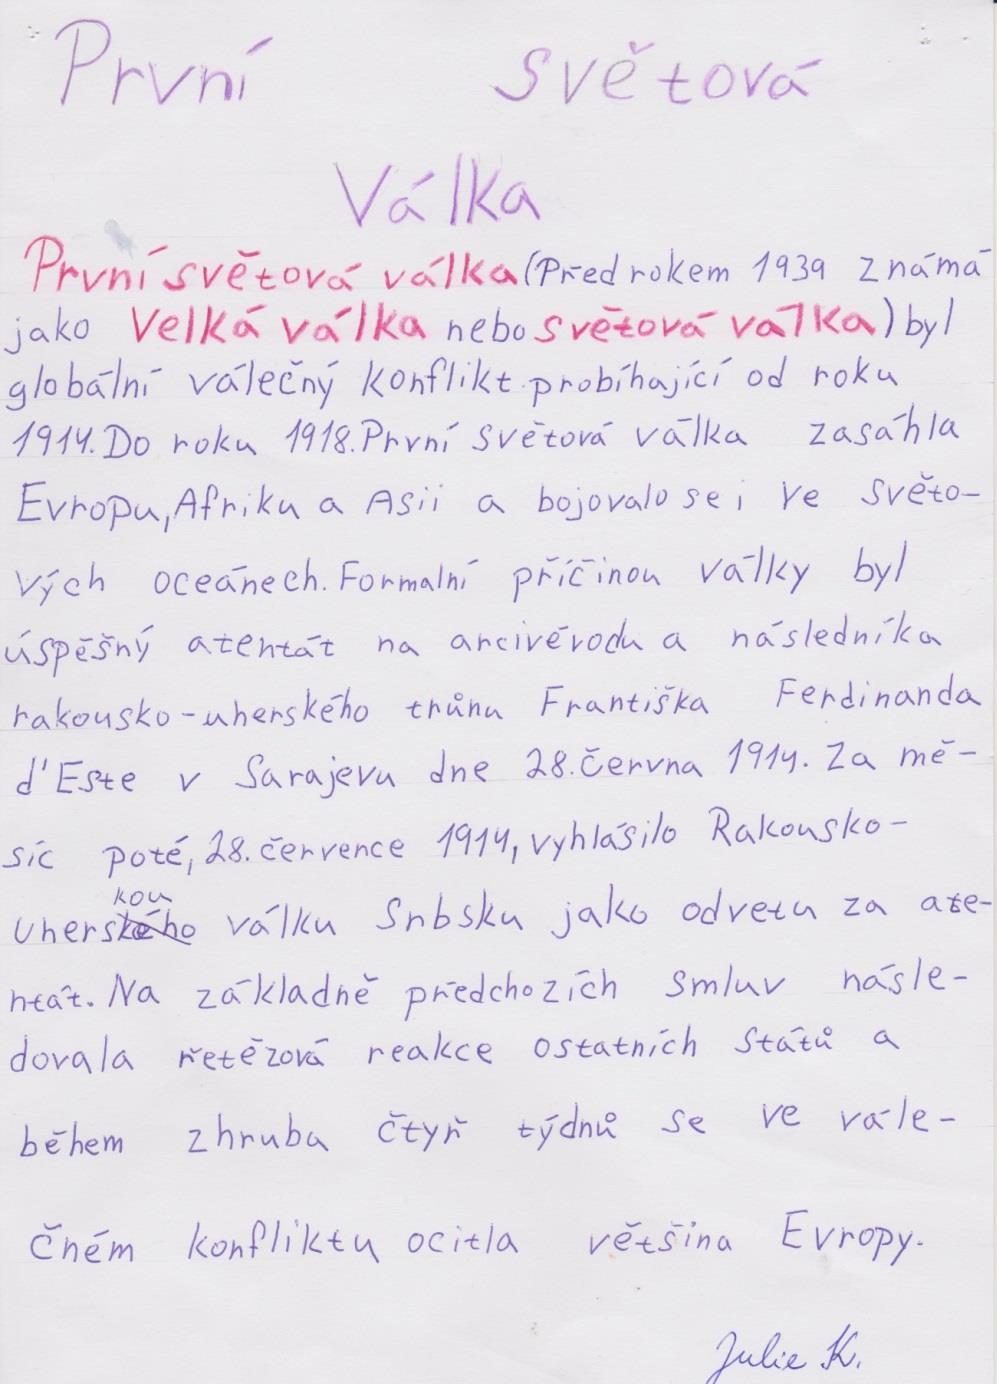 První světová
Válka
První světová válka (Před rokem 1939 známá
jako Velká válka nebo světová válka) byl
globální válečný konflikt probíhající od roku
1914. Do roku 1918. První světová válka zasáhla
Evropu, Afriku a Asii a bojovalo se i ve světo-
vých oceánech. Formalní příčinou války byl
úspěšný atentát na arcivévodu a následníka
rakousko-uherského trůnu Františka Ferdinanda
d'Este v Sarajevu dne 28. června 1914. Za mě-
síc poté, 28. července 1914, vyhlásilo Rakousko-
kou
uherského válku Srbsku jako odvetu za ate-
ntát. Na základně předchozích smluv násle-
dovala řetězová reakce ostatních států a
během zhruba čtyř týdnů se ve vále-
čném konfliktu ocitla většina Evropy.
Julie K.